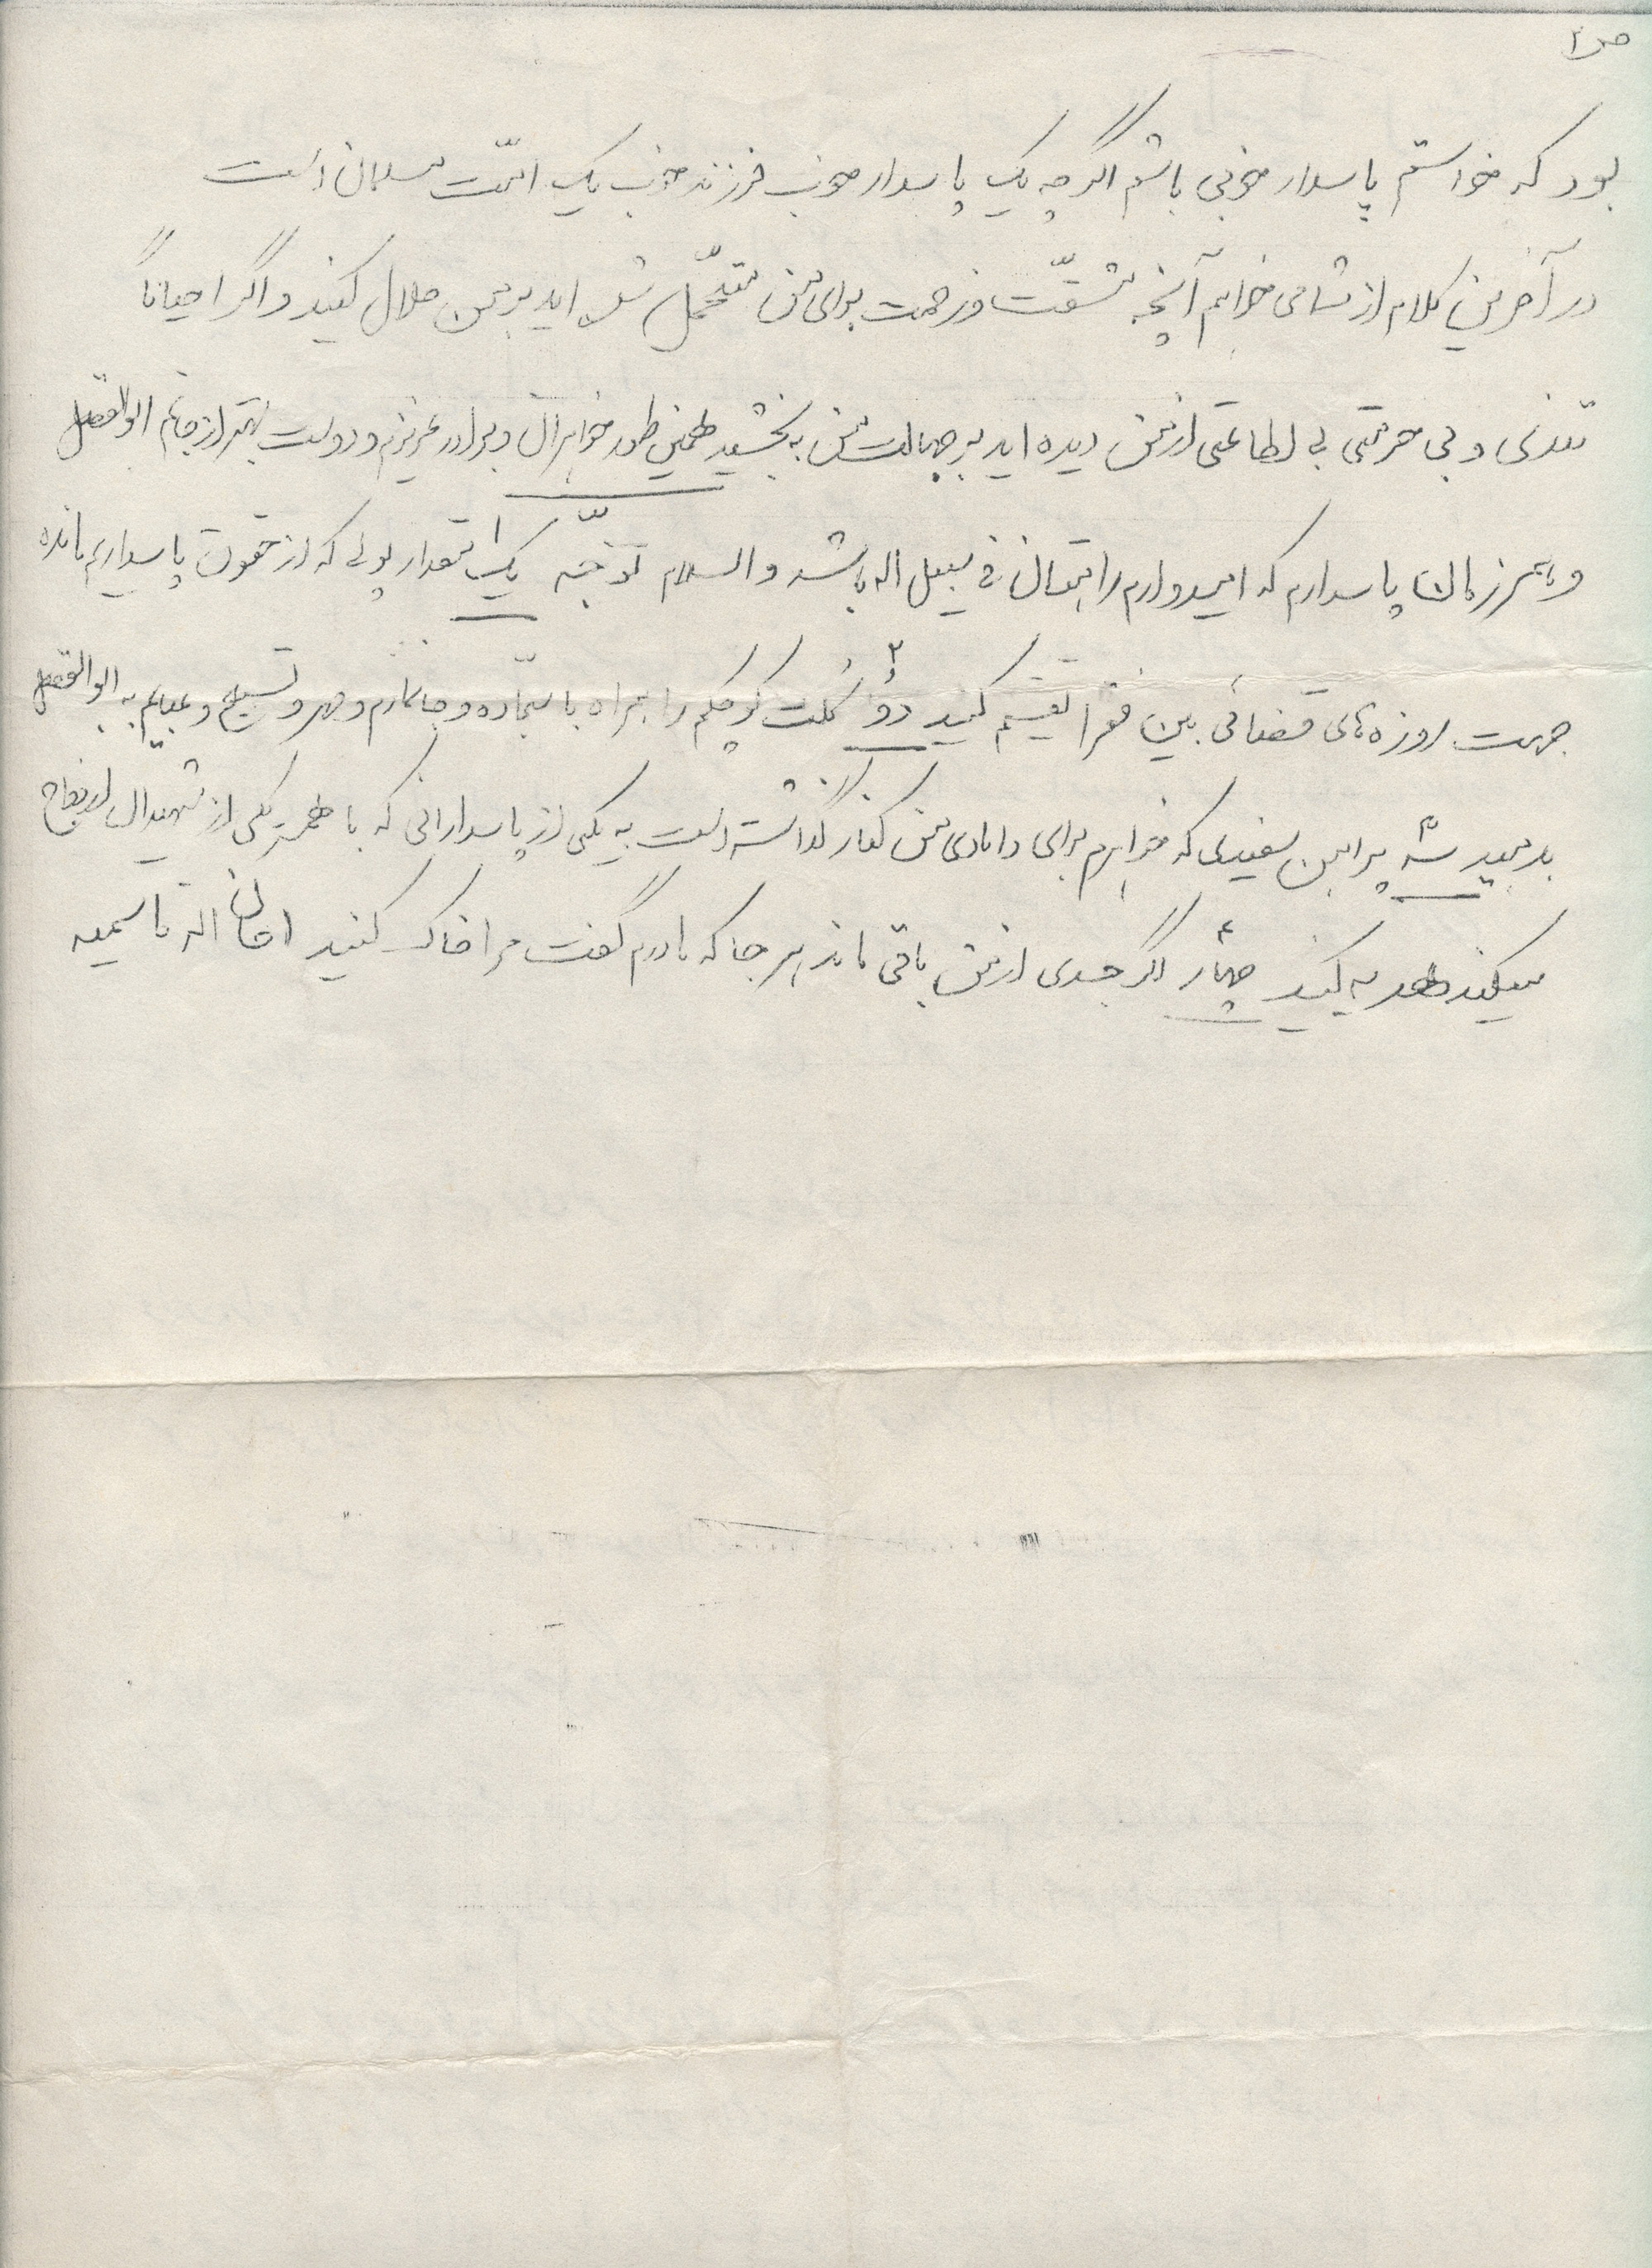 ص۲
بود که خواستم پاسدار خوبی باشم اگر چه یک پاسدار خوب فرزند خوب یک امّت مسلمان است
در آخرین کلام از شما می خواهم آنچه مشقّت و زحمت برای من متحمّل شده اید بر من حلال کنید و اگر احیاناً
تندی و بی حرمتی بی لطاعتی از من دیده اید بر جهالت من به بخشید همین طور خواهران و برادر عزیزم و دوست بهتر از جانم ابوالفضل
و همرزمان پاسدارم که امیدوارم راهتان فی سبیل اله باشد والسلام توجّه یک۱ مقدار پولی که از حقوق پاسداریم مانده
جهت روزه های قضائی بین فقرا تقسیم کنید دو۲ کلت کوچکم را همراه با سجّاده و جانمازم و مهر و تسبیح و عبایم به ابوالفضل
بدهید سه۳ پیراهن سفیدی که خواهرم برای دامادی من کنار گذاشته است به یکی از پاسدارانی که با همسر یکی از شهیدان ازدواج
میکند هدیه کنید چهار۴ اگر جسدی از من باقی ماند هر جا که مادرم گفت مرا خاک کنید امان اله قاسمیه